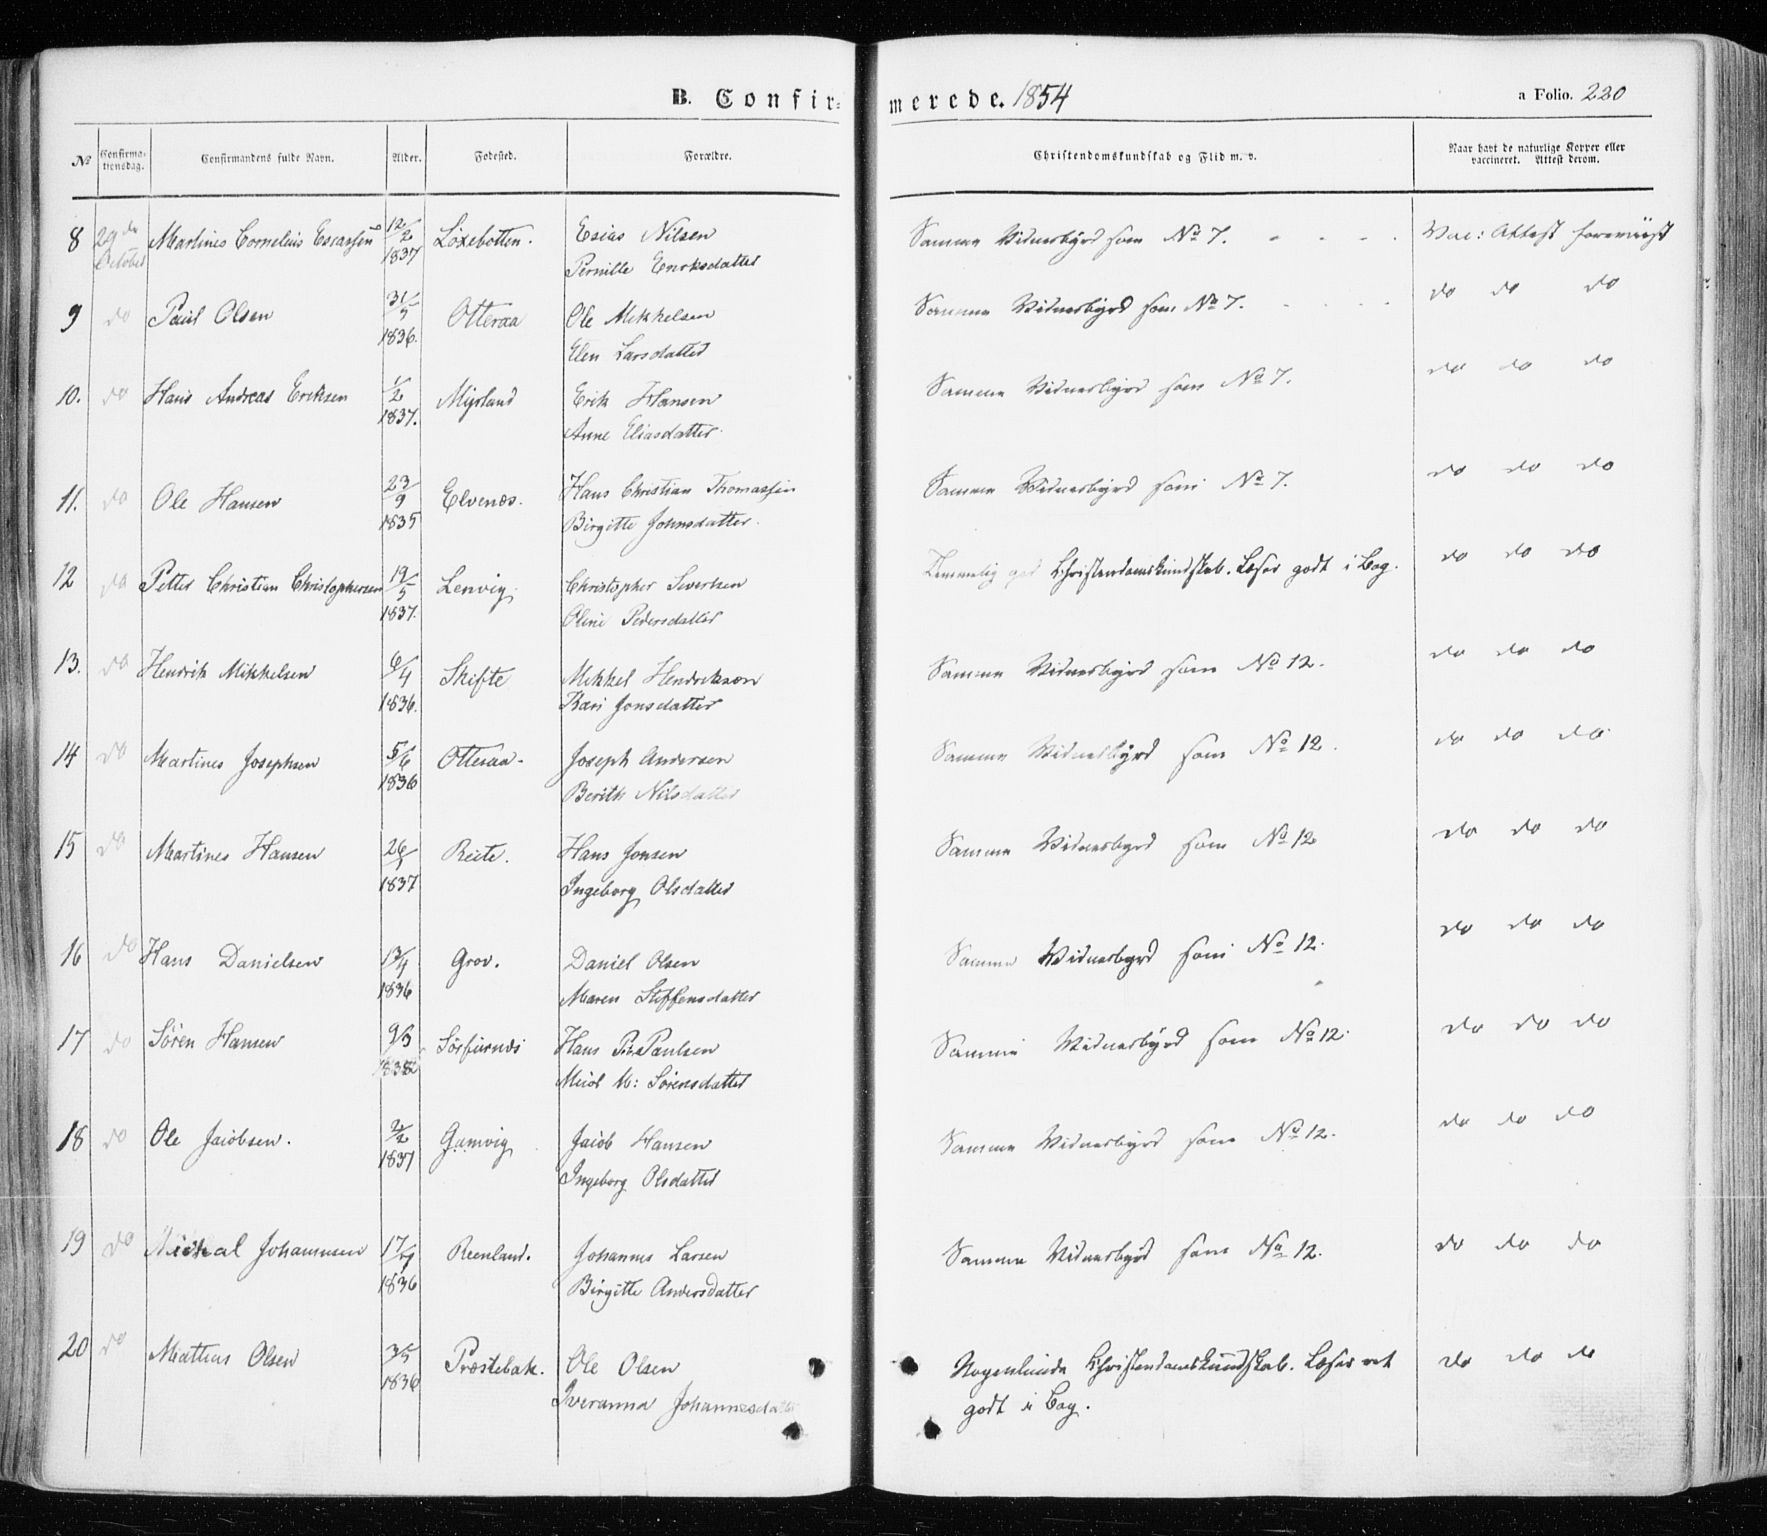 B. Confirmerede. 1854
a Folio. 220
№ Confirmationsdag. Confirmandens fulde Navn. Alder. Fødested. Forældre. Christendomskundskab og Flid m. v. Naar havt de naturlige Kopper eller vaccineret. Attest derom.
8 29de October Martines Cornelius 12/2 1837 Löxebotten. Esias Nilsen Samme Vidnesbyrd som No 7. Vac: Attest foreviist
Pernille
9 do Paul Olsen 1836. Otteraa Ole Mikkelsen Samme Vidnesbyrd som No 7. do do do
Elen Larsdatter
10. do Hans Andreas Eriksen 1/2 1837. Myrland Erik Hansen Samme Vidnesbyrd som No 7. do do do
Anne Eliasdatter
11. do Ole Hansen 23/9 1835 Elvenes. Hans Christian Thomassen Samme Vidnesbyrd som No 7. do do do
Birgitte Johnsdatter.
12 do Petter Christian Christophersen 19/5 1837. Lenvig Christopher Sivertsen Temmelig god Christendomskundskab. Læser godt i Bog. do do do
Oline Pedersdatter
13. do Hendrik Mikkelsen 6/4 1836. Skifte Mikkel Hendrikson Samme Vidnesbyrd som No 12. do do do
Kari Jonsdatter
14 do Martines Josephsen 5/6 1836 Otteraa. Joseph Andersen Samme Vidnesbyrd som No 12. do do do
Berith Nilsdatter
15 do Martines Hansen 26/1 1837 Hans Jonsen Samme Vidnesbyrd som No 12 do do do
Ingeborg Olsdatter
16 do Hans Danielsen 1836 Grov. Daniel Olsen Samme Vidnesbyrd som No 12. do do do
Maren Steffensdatter
17 do Sören Hansen 9/3 Hans Paulsen Samme Vidnesbyrd som No 12. do do do
M: Sörensdatter
18 do Ole Jacobsen. 2/2 1837 Gamvig Jacob Hansen Samme Vidnesbyrd som No 12. do do do
Ingeborg Olsdatter
19 do Michal Johannesen 1836 Reenland. Johannes Larsen Samme Vidnesbyrd som No 12. do do do
Birgitte Andersdatter
20 do Mathias Olsen 3/5 1836 Præstebak. Ole Olsen Nogenlunde Christendomskundskab. Læser ret do do do
Iveranna Johannesdatter godt i Bog.